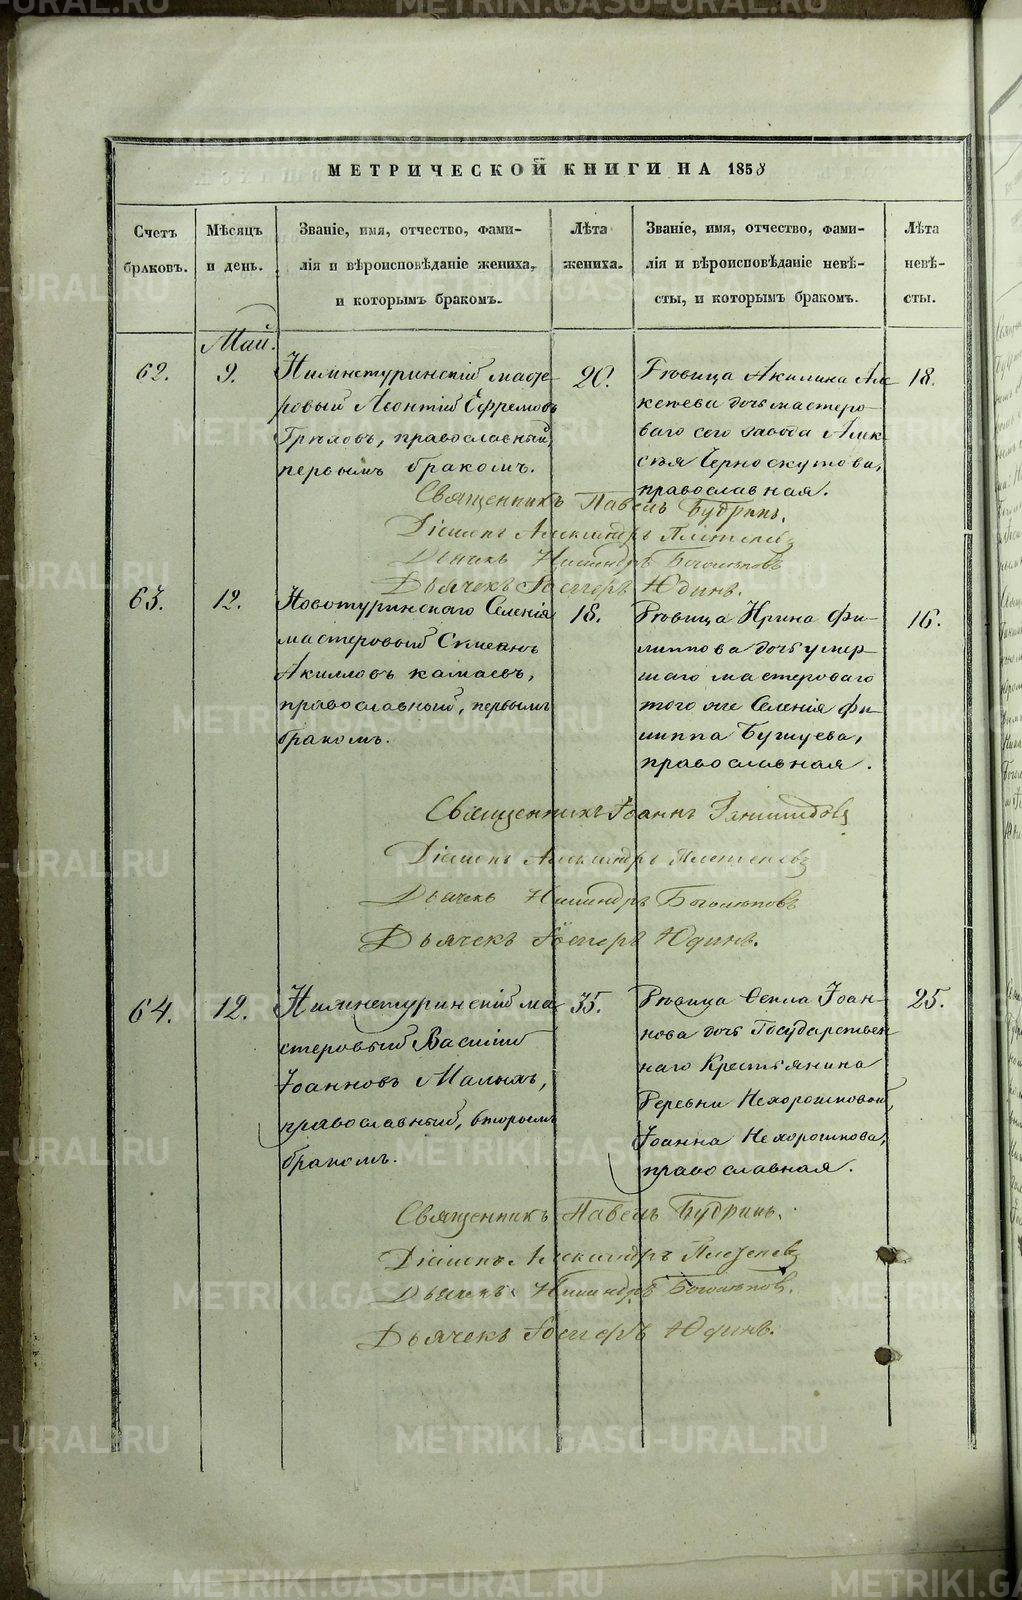 МЕТРИЧЕСКОЙ КНИГИ НА 1858
Счетъ браковъ.
Мѣсяцъ и день.
Званіе, имя, отчество, фами-
лія и вѣроисповѣданіе жениха,
и которымъ бракомъ.
Лѣта жениха.
Званіе, имя, отчество, фами-
лія и вѣроисповѣданіе невѣ-
сты, и которымъ бракомъ.
Лѣта невѣ-
сты.
Май.
62.
9.
Нижнетуринскій масте-
ровый Леонтій Ефремовъ
православный,
первымъ бракомъ.
20.
Дѣвица Акилина Але
ксѣева дочь мастеро-
ваго сего завода Алек
сѣя Черноскутова,
православная.
18.
Священникъ Павелъ Будринъ.
Діаконъ Александръ Плетеневъ
Дьячекъ Никандръ Боголѣповъ
Дьячекъ Іосифъ Юдинъ.
63.
12.
Новотуринскаго Селенія
мастеровый Симеонъ
Акиловъ Камаевъ,
православный, первымъ
бракомъ.
18.
Дѣвица Ирина Фи-
липпова дочь умер-
шаго мастероваго
того же Селенія Фи-
липпа Бушуева,
православная.
16.
Священникъ Іоаннъ
Діаконъ Александръ Плетеневъ
Дьячекъ Никандръ Боголѣповъ
Дьячекъ Іосифъ Юдинъ.
64.
12.
Нижнетуринскій ма-
стеровый Василій
Іоанновъ Малыхъ,
православный, вторымъ
бракомъ.
35.
Дѣвица Ѳекла Іоан-
нова дочь Государствен
наго Крестьянина
Деревни Нехорошковой,
Іоанна Нехорошкова,
православная.
25.
Священникъ Павелъ Будринъ.
Діаконъ Александръ Плетеневъ
Дьячекъ Никандръ Боголѣповъ.
Дьячекъ Іосифъ Юдинъ.
METRIKI.GASO-URAL.RU